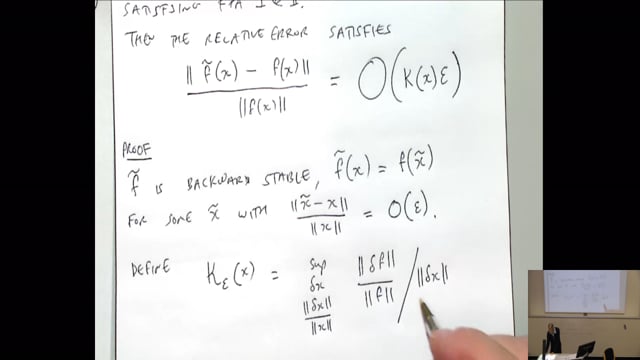 SATISFYING FPA I & II.
THEN THE RELATIVE ERROR SATISFIES
‖f̃(x) - f(x)‖ / ‖f(x)‖ = O(K(x)ε)
PROOF
f̃ IS BACKWARD STABLE, f̃(x) = f(x̃)
FOR SOME x̃ WITH ‖x̃ - x‖ / ‖x‖ = O(ε).
DEFINE K_ε(x) = sup δx ‖δx‖/‖x‖ ‖δf‖/‖f‖ / ‖δx‖